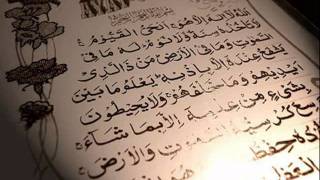 اَللّٰهُ لَا اِلٰهَ اِلَّا هُوَ اَلْحَيُّ الْقَيُّومُ
لَا تَأْخُذُهُ سِنَةٌ وَلَا نَوْمٌ لَهُ مَا فِي
السَّمٰوٰتِ وَمَا فِي الْاَرْضِ مَنْ ذَا الَّذِي
يَشْفَعُ عِنْدَهُ اِلَّا بِاِذْنِهِ يَعْلَمُ مَا بَيْنَ
اَيْدِيهِمْ وَمَا خَلْفَهُمْ وَلَا يُحِيطُونَ
بِشَيْءٍ مِنْ عِلْمِهِ اِلَّا بِمَا شَاءَ
وَسِعَ كُرْسِيُّهُ السَّمٰوٰتِ وَالْاَرْضَ